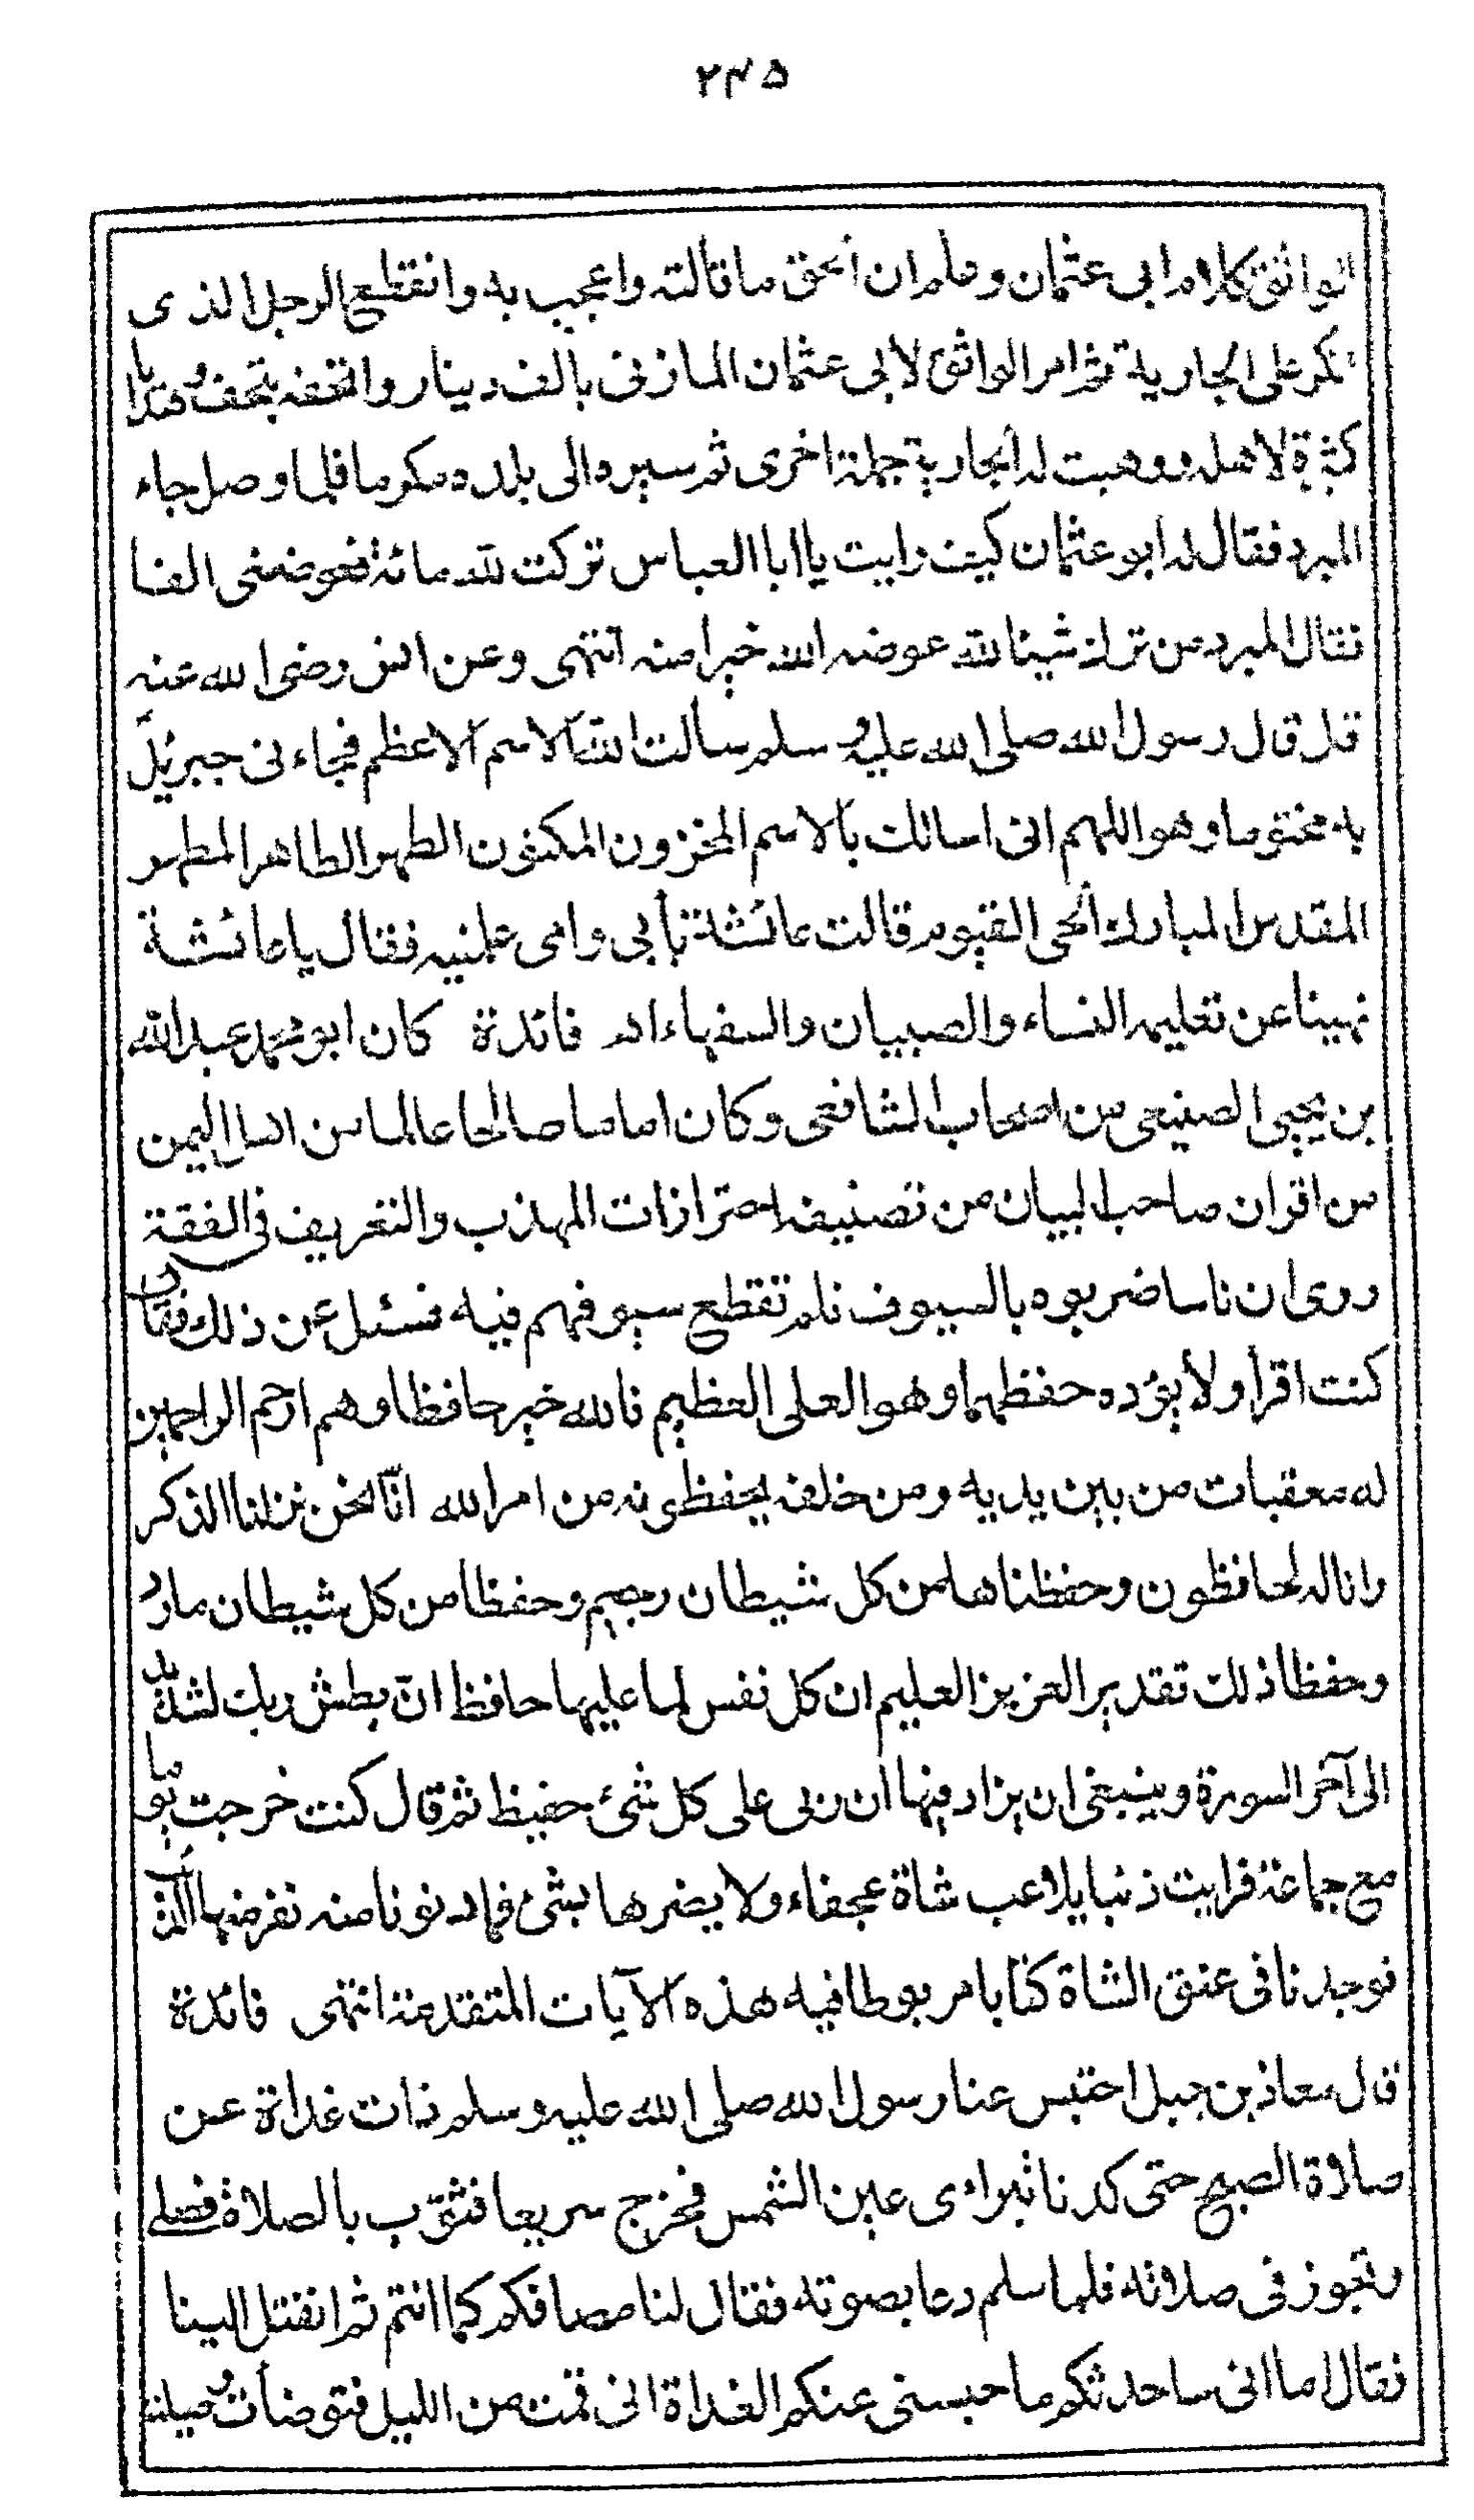 ٢٣٥
الواثق كلام ابى عثمان وعلم ان الحق ما قالته واعجب به وانقطع الرجل الذى
انكر على الجارية ثم امر الواثق لابى عثمان المازنى بالف دينار واتحفه بتحف وهدايا
كثيرة لاهله ووهبت له الجارية جملة اخرى ثم سيره الى بلده مكرما فلما وصل جاء
المبرد فقال له ابو عثمان كيف رايت يا ابا العباس تركت لله مائة فعوضنى الفا
فقال المبرد من ترك شيئا لله عوضه الله خيرا منه انتهى وعن انس رضى الله عنه
قال قال رسول الله صلى الله عليه وسلم سالت الله الاسم الاعظم فجاءنى جبريل
به مختوما وهو اللهم انى اسالك بالاسم المخزون المكنون الطهر الطاهر المطهر
المقدس المبارك الحى القيوم قالت عائشة بأبى وامى علمنيه فقال يا عائشة
نهينا عن تعليمه النساء والصبيان والسفهاء اه فائدة كان ابو محمد عبد الله
بن يحيى الصنيعى من اصحاب الشافعى وكان اماما صالحا عالما من اهل اليمن
من اقران صاحب البيان من تصنيفه احترازات المهذب والتعريف فى الفقة
روى ان ناسا ضربوه بالسيوف فلم تقطع سيوفهم فيه فسئل عن ذلك فقال
كنت اقرأ ولا يؤده حفظهما وهو العلى العظيم فالله خير حافظا وهم ارحم الراحمين
له معقبات من بين يديه ومن خلفه يحفظونه من امر الله انّا نحن نزلنا الذكر
وانا له لحافظون وحفظناها من كل شيطان رجيم وحفظا من كل شيطان مارد
وحفظا ذلك تقدير العزيز العليم ان كل نفس لما عليها حافظ انّ بطش ربك لشديد
الى آخر السورة وينبغى ان يزاد فيها ان ربى على كل شئ حفيظ ثم قال كنت خرجت يوما
مع جماعة فرايت ذئبا يلاعب شاة عجفاء ولا يضرها بشئ فلما دنونا منه نفر منها الذئب
فوجدنا فى عنق الشاة كتابا مربوطا فيه هذه الآيات المتقدمة انتهى فائدة
قال معاذ بن جبل احتبس عنا رسول الله صلى الله عليه وسلم ذات غداة عن
صلاة الصبح حتى كدنا نتراءى عين الشمس فخرج سريعا فثوّب بالصلاة فصلى
وتجوز فى صلاته فلما سلم دعا بصوته فقال لنا مصافكم كما انتم ثم انفتل الينا
فقال اما انى ساحدثكم ما حبسنى عنكم الغداة انى قمت من الليل فتوضأت وصليت